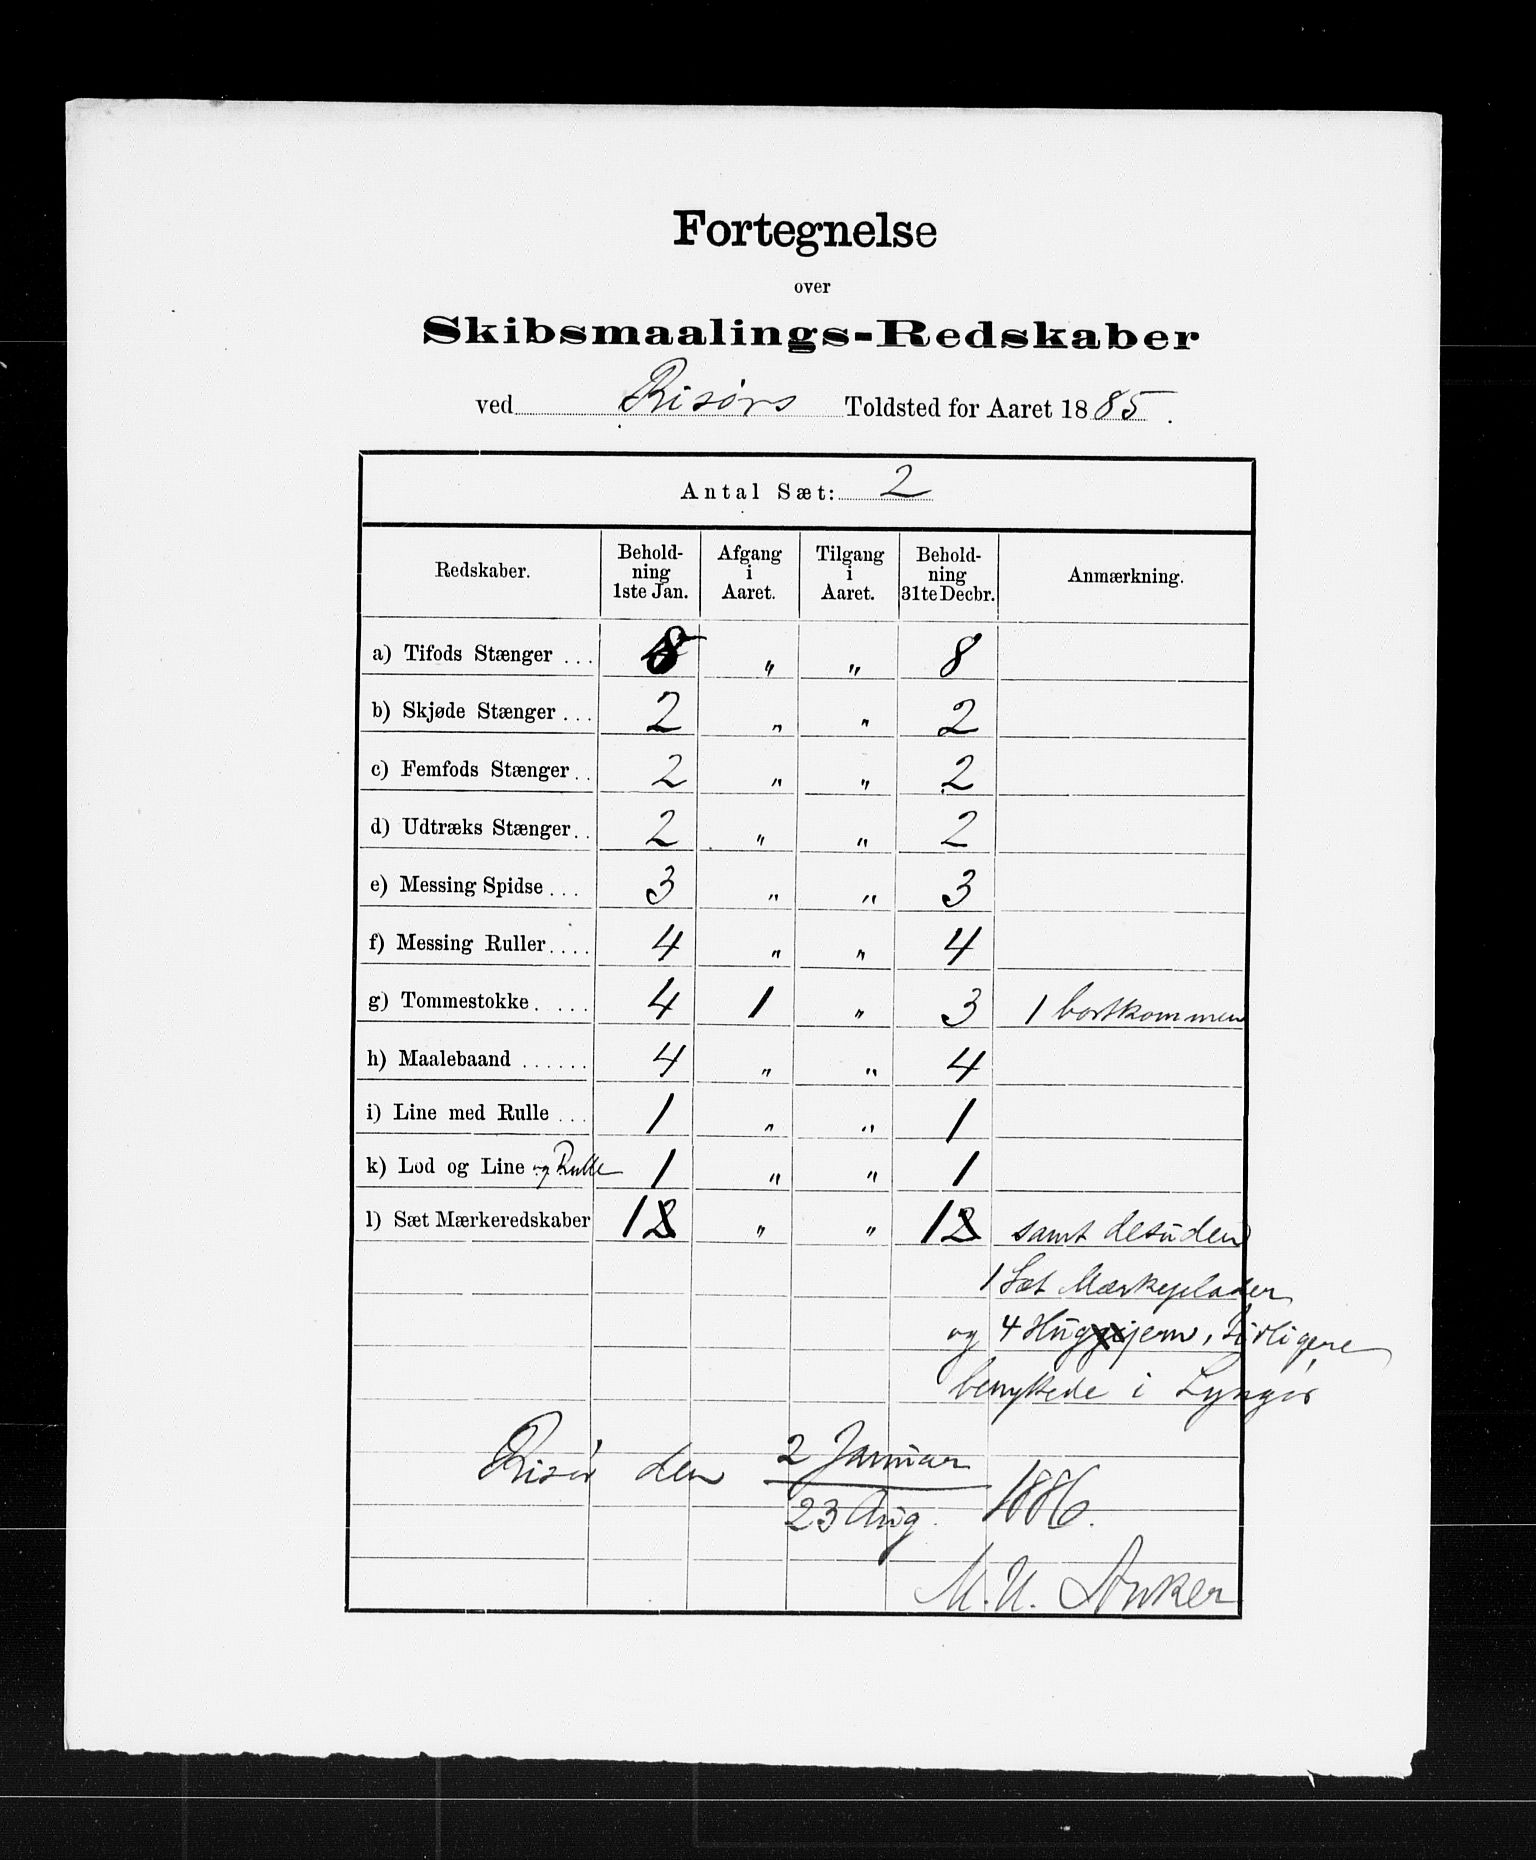 Fortegnelse
over
Skibsmaalings-Redskaber
ved Risørs Toldsted for Aaret 1885.
Antal Sæt: 2
Redskaber. Behold-ning 1ste Jan. Afgang i Aaret. Tilgang i Aaret. Behold-ning 31te Decbr. Anmærkning.
a) Tifods Stænger ... 8 " " 8
b) Skjøde Stænger ... 2 " " 2
c) Femfods Stænger .. 2 " " 2
d) Udtræks Stænger .. 2 " " 2
e) Messing Spidse ... 3 " " 3
f) Messing Ruller .... 4 " " 4
g) Tommestokke ..... 4 1 " 3 1 bortkommen
h) Maalebaand ...... 4 " " 4
i) Line med Rulle ... 1 " " 1
k) Lod og Line og Rulle 1 " " 1
l) Sæt Mærkeredskaber 1 " " 1 samt desuden
1 Sæt Mærkeplader
og 4 Hugjern, tidligere
benyttede i Lyngør
Risør den 2 Januar
23 Aug. 1886.
M. U. Anker